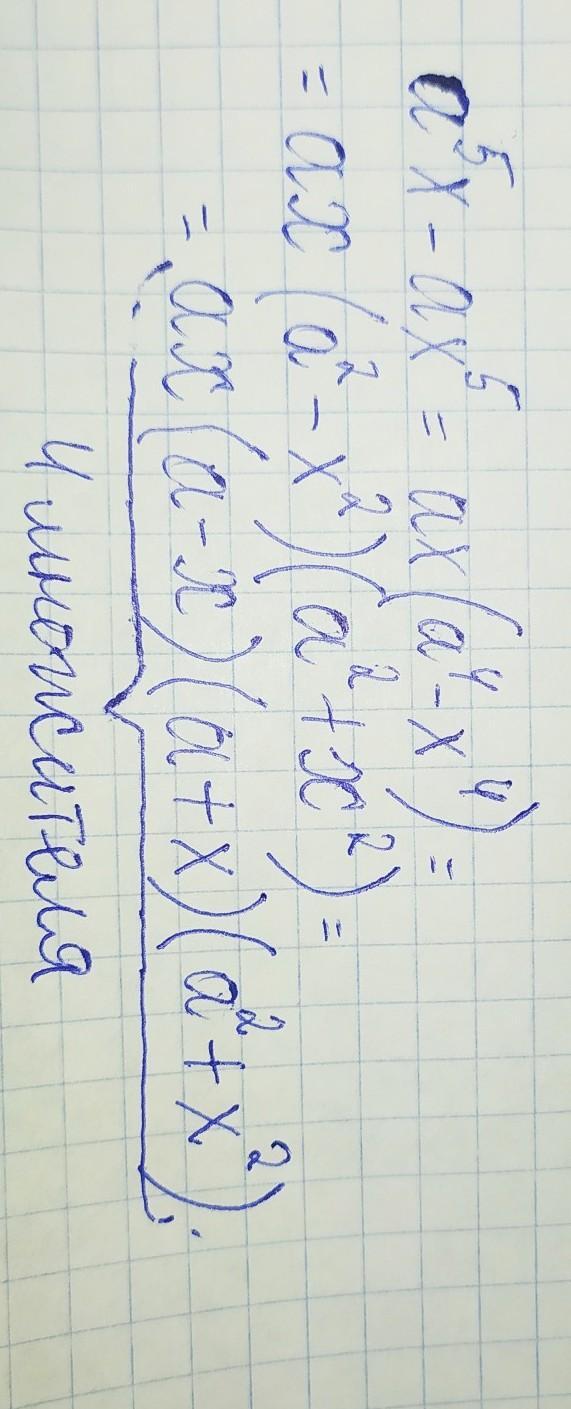 a⁵x - ax⁵ = ax(a⁴-x⁴) =
= ax(a² - x²)(a² + x²) =
= ax(a-x)(a+x)(a² + x²).
4 множителя